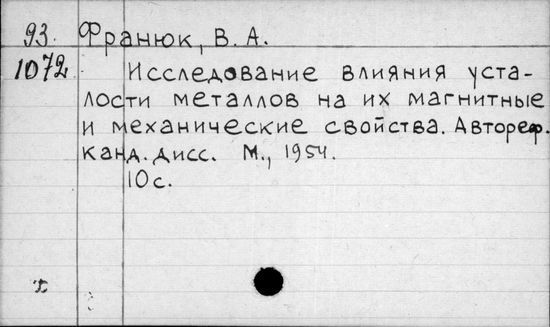 93. Франюк, В. А.
1072 Исследование влияния уста-
лости металлов на их магнитные
и механические свойства. Автореф.
канд. дисс. М., 1954.
10 с.